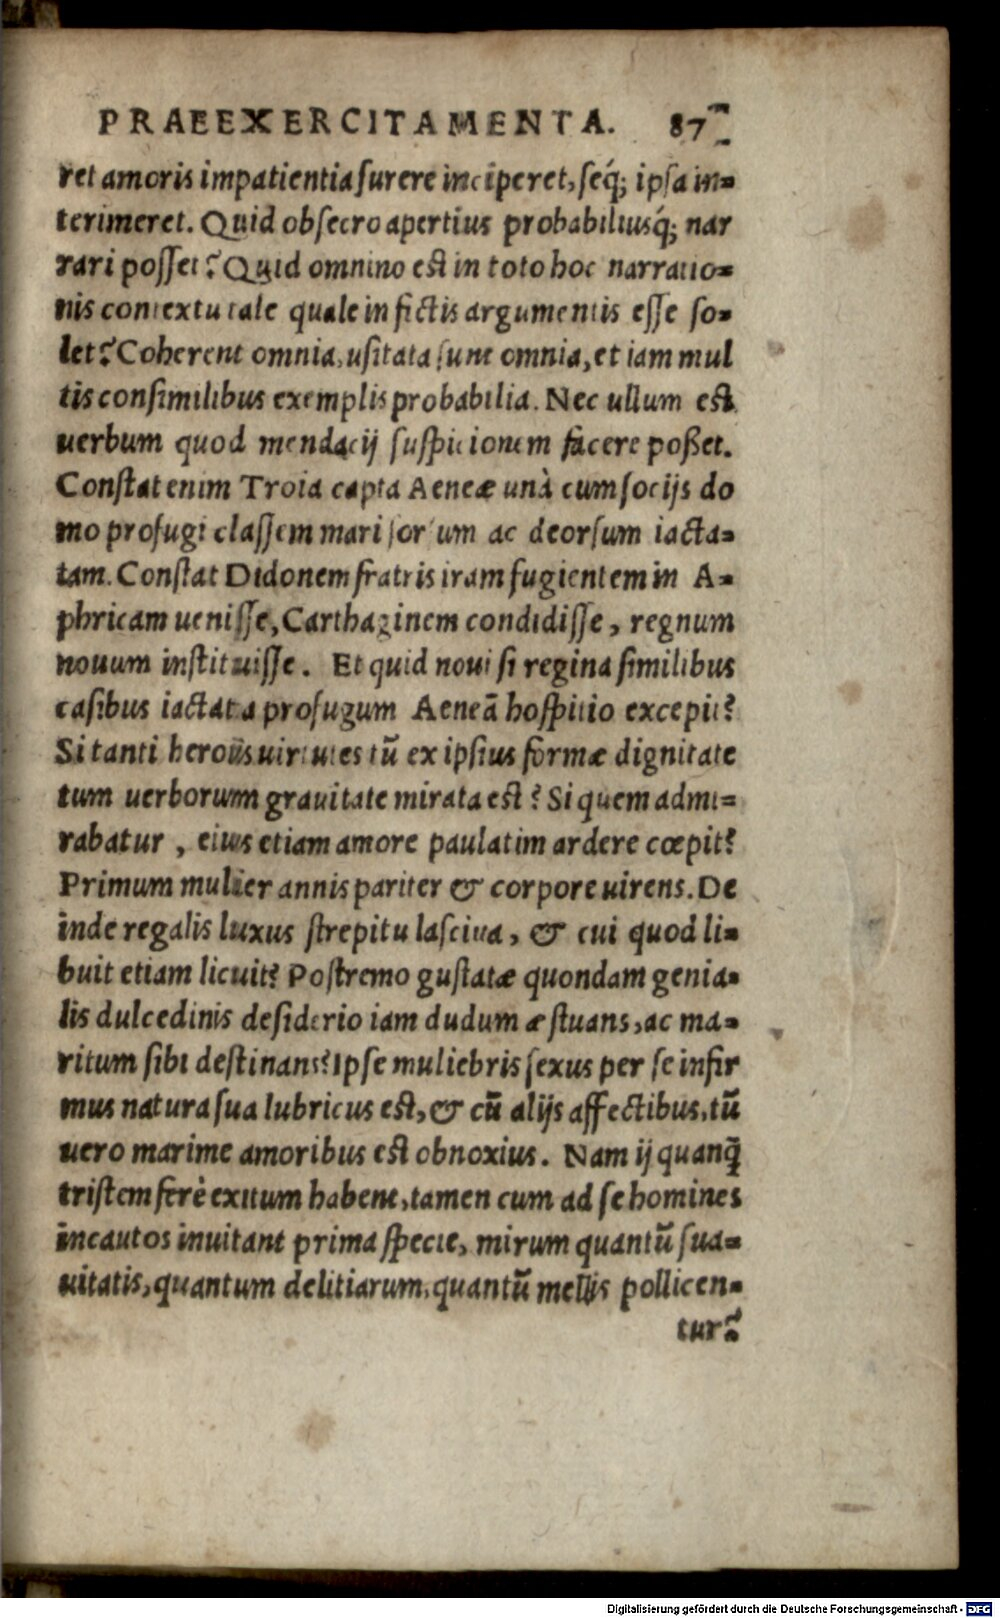 PRAEEXERCITAMENTA. 87
ret amoris impatientia furere inciperet, seq́; ipsa in-
terimeret. Quid obsecro apertius probabiliusq́; nar
rari posset? Quid omnino est in toto hoc narratio-
nis contextu tale quale in fictis argumentis esse so-
let? Coherent omnia, usitata sunt omnia, et iam mul
tis consimilibus exemplis probabilia. Nec ullum est
uerbum quod mendacij suspicionem facere poßet.
Constat enim Troia capta Aeneæ unà cum socijs do
mo profugi classem mari sorsum ac deorsum iacta-
tam. Constat Didonem fratris iram fugientem in A-
phricam uenisse, Carthaginem condidisse, regnum
nouum instituisse. Et quid noui si regina similibus
casibus iactata profugum Aeneā hospitio excepit?
Si tanti herois uirtutes tū ex ipsius formæ dignitate
tum uerborum grauitate mirata est? Si quem admi-
rabatur, eius etiam amore paulatim ardere cœpit?
Primum mulier annis pariter & corpore uirens. De
inde regalis luxus strepitu lasciua, & cui quod li-
buit etiam licuit? Postremo gustatæ quondam genia-
lis dulcedinis desiderio iam dudum æstuans, ac ma-
ritum sibi destinans? Ipse muliebris sexus per se infir
mus natura sua lubricus est, & cū alijs affectibus, tū
uero marime amoribus est obnoxius. Nam ij quanq̄
tristem ferè exitum habent, tamen cum ad se homines
incautos inuitant prima specie, mirum quantū sua-
uitatis, quantum delitiarum, quantū mellis pollicen-
tur?
Digitalisierung gefördert durch die Deutsche Forschungsgemeinschaft - DFG